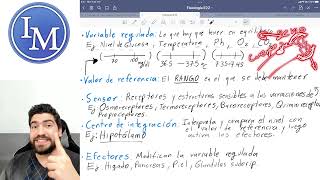 IM
Fisiología EV2
• Variable regulada: Lo que hay que tener en equili
Ej: Nivel de Glucosa, Temperatura, Ph, O₂, CO
70 100 mg/dl 36.5 37.5 °C 7.35-7.45
• Valor de referencia: El RANGO en el que se debe mantener
• Sensor: Receptores y estructuras sensibles a las variaciones de
Ej: Osmorreceptores, Termorreceptores, Barorreceptores, Quimiorre
Propioceptores.
• Centro de integración: Interpreta y compara el nivel con
el valor de referencia, y luego
Ej: Hipotálamo activa los efectores.
• Efectores: Modifican la variable regulada
Ej: Hígado, Pancreas, Piel, Glándulas sudoríp